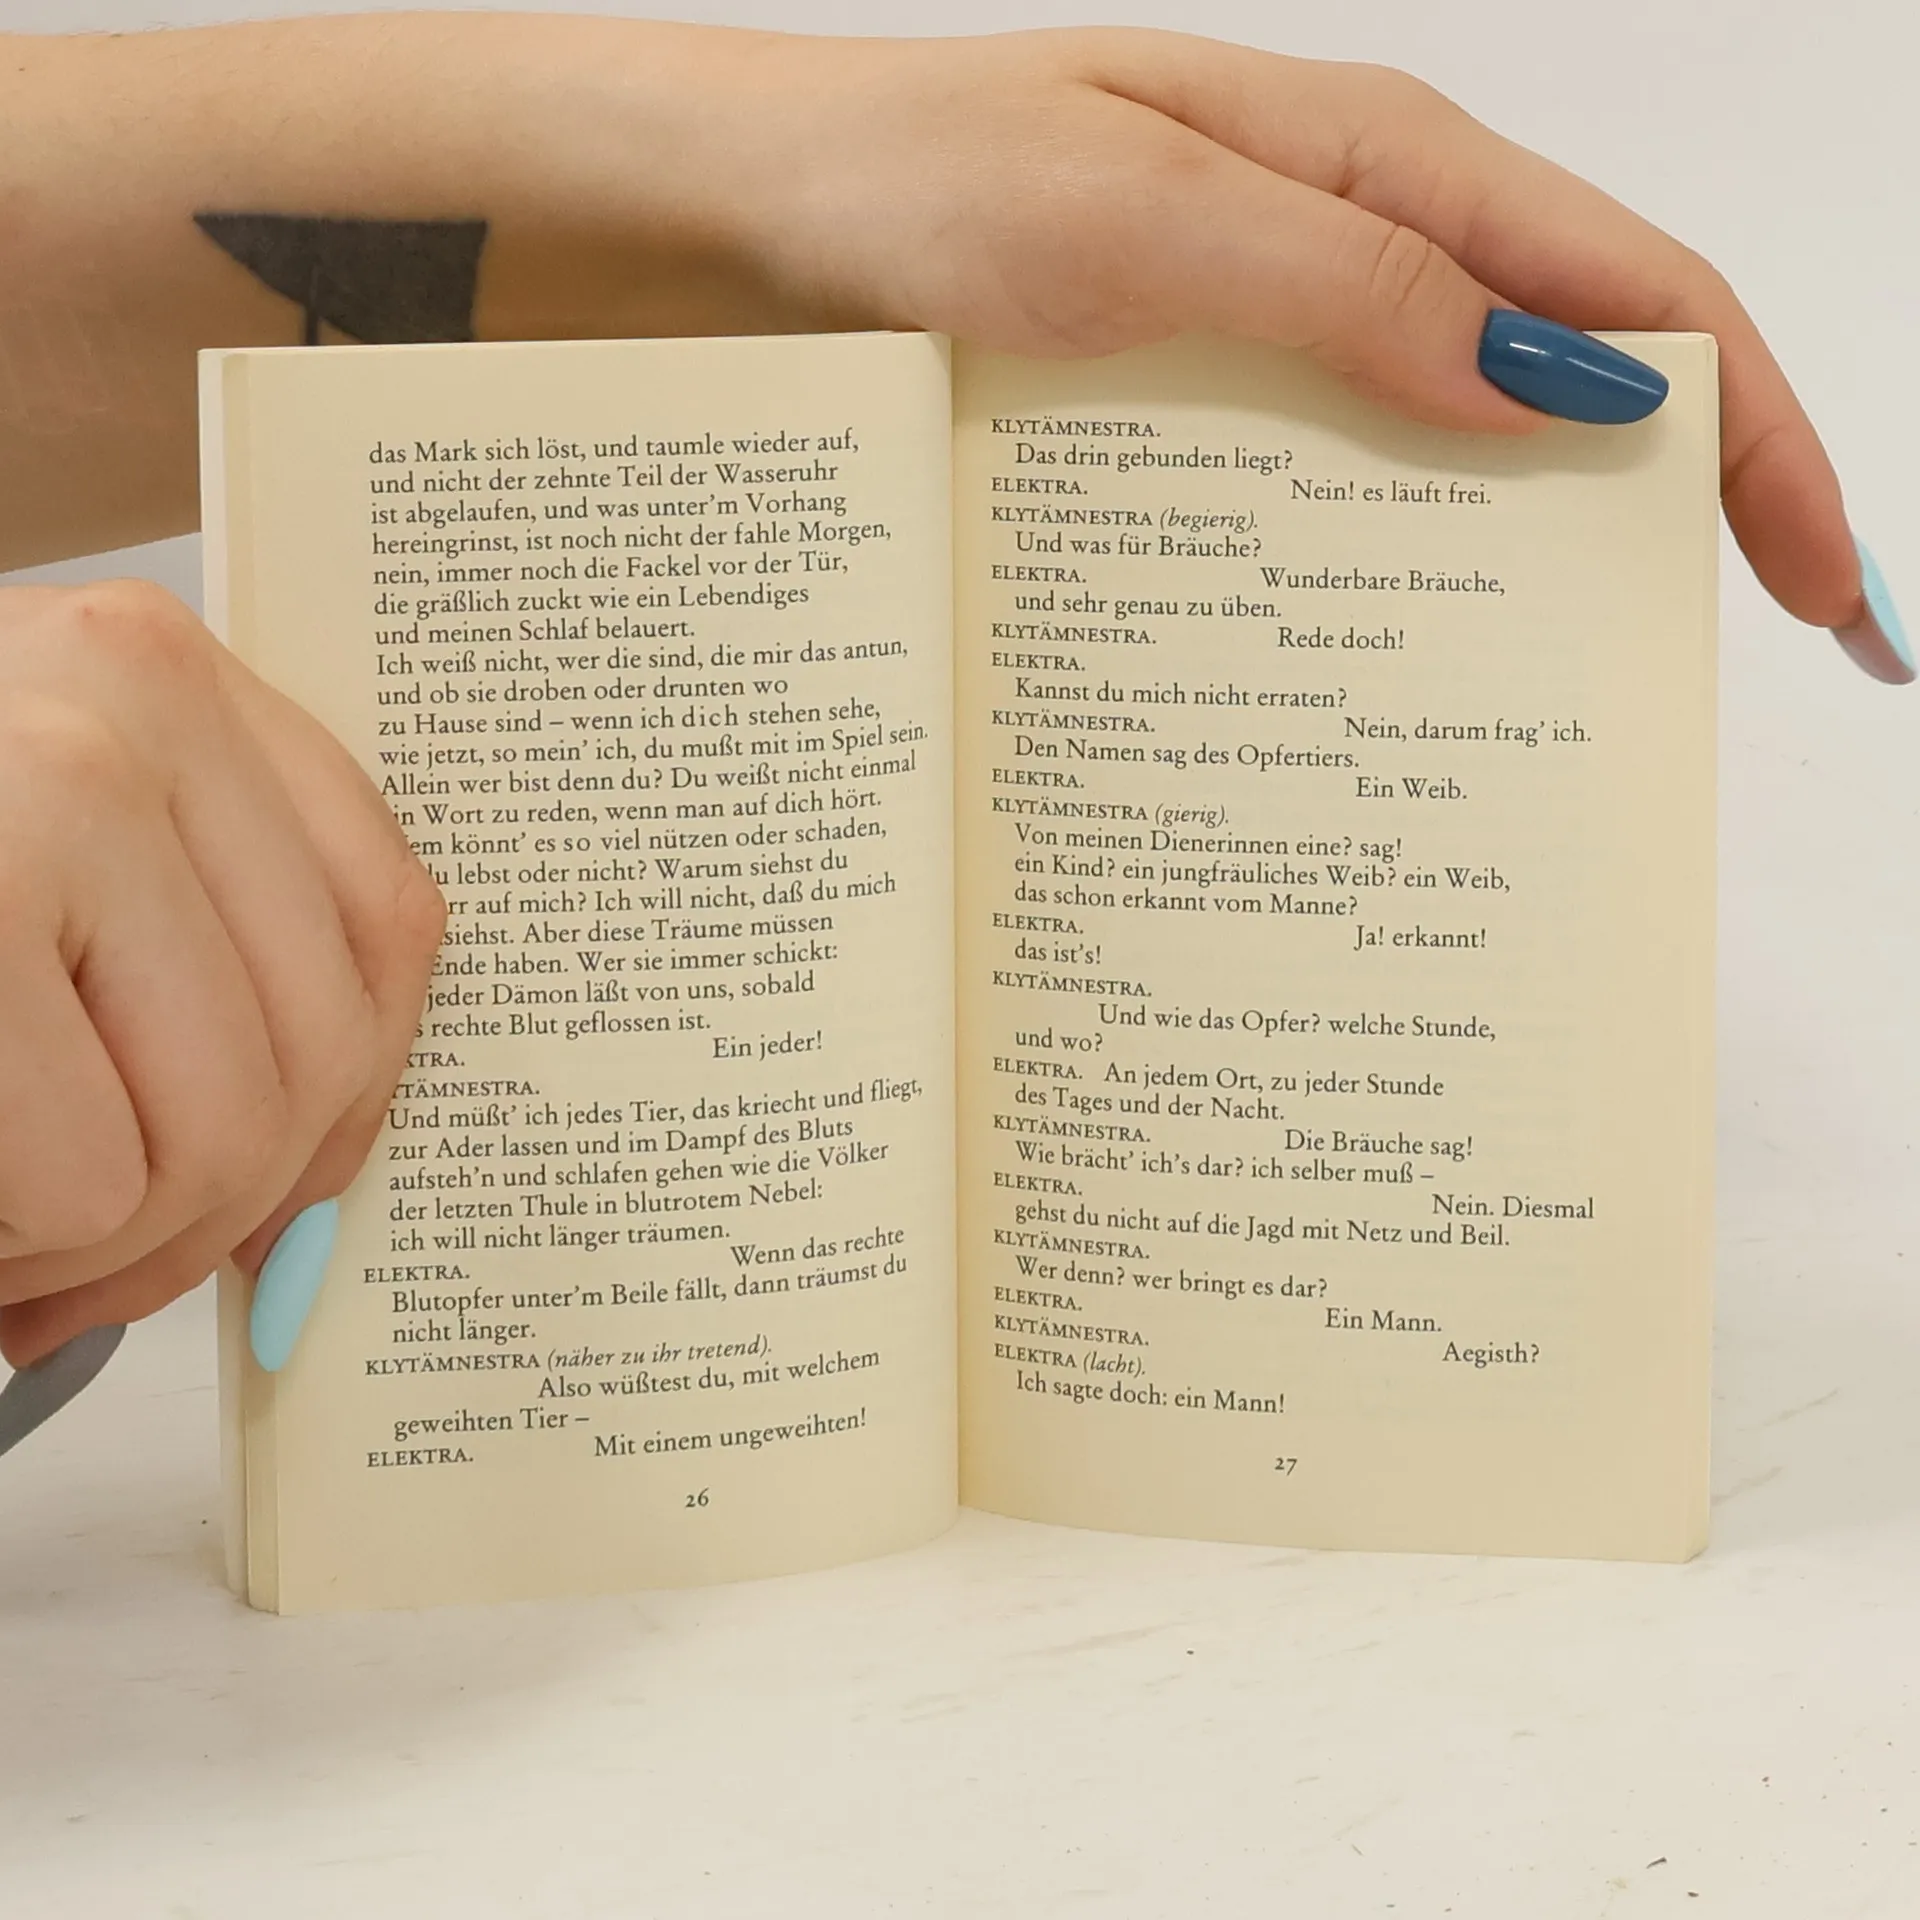 das Mark sich löst, und taumle wieder auf,
und nicht der zehnte Teil der Wasseruhr
ist abgelaufen, und was unter’m Vorhang
hereingrinst, ist noch nicht der fahle Morgen,
nein, immer noch die Fackel vor der Tür,
die gräßlich zuckt wie ein Lebendiges
und meinen Schlaf belauert.
Ich weiß nicht, wer die sind, die mir das antun,
und ob sie droben oder drunten wo
zu Hause sind – wenn ich dich stehen sehe,
wie jetzt, so mein’ ich, du mußt mit im Spiel sein.
Allein wer bist denn du? Du weißt nicht einmal
Wort zu reden, wenn man auf dich hört.
könnt’ es so viel nützen oder schaden,
lebst oder nicht? Warum siehst du
auf mich? Ich will nicht, daß du mich
siehst. Aber diese Träume müssen
Ende haben. Wer sie immer schickt:
jeder Dämon läßt von uns, sobald
rechte Blut geflossen ist.
Ein jeder!
Und müßt’ ich jedes Tier, das kriecht und fliegt,
zur Ader lassen und im Dampf des Bluts
aufsteh’n und schlafen gehen wie die Völker
der letzten Thule in blutrotem Nebel:
ich will nicht länger träumen.
ELEKTRA. Wenn das rechte
Blutopfer unter’m Beile fällt, dann träumst du
nicht länger.
KLYTÄMNESTRA (näher zu ihr tretend).
Also wüßtest du, mit welchem
geweihten Tier –
ELEKTRA. Mit einem ungeweihten!
26
KLYTÄMNESTRA.
Das drin gebunden liegt?
ELEKTRA. Nein! es läuft frei.
KLYTÄMNESTRA (begierig).
Und was für Bräuche?
ELEKTRA. Wunderbare Bräuche,
und sehr genau zu üben.
KLYTÄMNESTRA. Rede doch!
ELEKTRA.
Kannst du mich nicht erraten?
KLYTÄMNESTRA. Nein, darum frag’ ich.
Den Namen sag des Opfertiers.
ELEKTRA. Ein Weib.
KLYTÄMNESTRA (gierig).
Von meinen Dienerinnen eine? sag!
ein Kind? ein jungfräuliches Weib? ein Weib,
das schon erkannt vom Manne?
ELEKTRA. Ja! erkannt!
das ist’s!
KLYTÄMNESTRA.
Und wie das Opfer? welche Stunde,
und wo?
ELEKTRA. An jedem Ort, zu jeder Stunde
des Tages und der Nacht.
KLYTÄMNESTRA. Die Bräuche sag!
Wie brächt’ ich’s dar? ich selber muß –
ELEKTRA. Nein. Diesmal
gehst du nicht auf die Jagd mit Netz und Beil.
KLYTÄMNESTRA.
Wer denn? wer bringt es dar?
ELEKTRA. Ein Mann.
KLYTÄMNESTRA. Aegisth?
ELEKTRA (lacht).
Ich sagte doch: ein Mann!
27